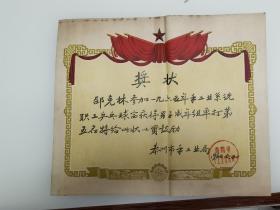 奖状
邵克林参加一九六五年重工业系统
职工乒乓球赛获得男子成年组单打第
五名特给此状以资鼓励
泰州市重工业局